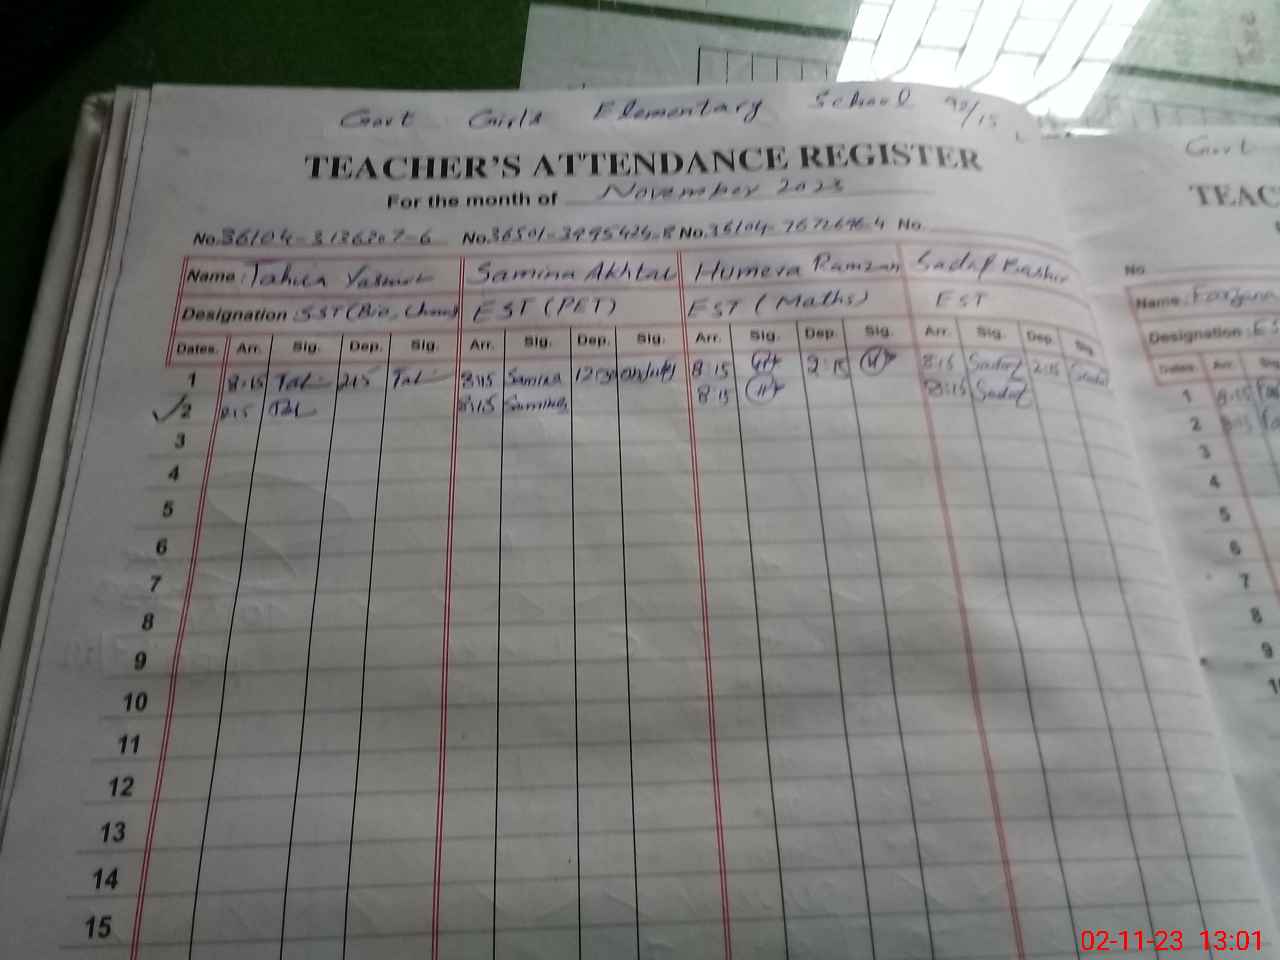 Govt Girls Elementary School 90/15
TEACHER'S ATTENDANCE REGISTER
For the month of November 2023
No. No. No. No.
Name: Tahira Yasmin Samina Akhtar Humera Ramzan Sadaf Bashir
Designation: SST (Bio, Chem) EST (PET) EST (Maths) EST
Dates. Arr. Sig. Dep. Sig. Arr. Sig. Dep. Sig. Arr. Sig. Dep. Sig. Arr. Sig. Dep. Sig
1 8:15 Tah 2:15 Tah 8:15 Samina 12:30 8:15 2:15 8:15 Sadaf 2:15 Sadaf
2 8:15 Tah 8:15 Samina 8:15 8:15 Sadaf
3
4
5
6
7
8
9
10
11
12
13
14
15
Govt
TEAC
No.
Name:
Designation:
Dates Arr.
1 8:15
2 8:15
3
4
5
6
7
8
9
02-11-23 13:01